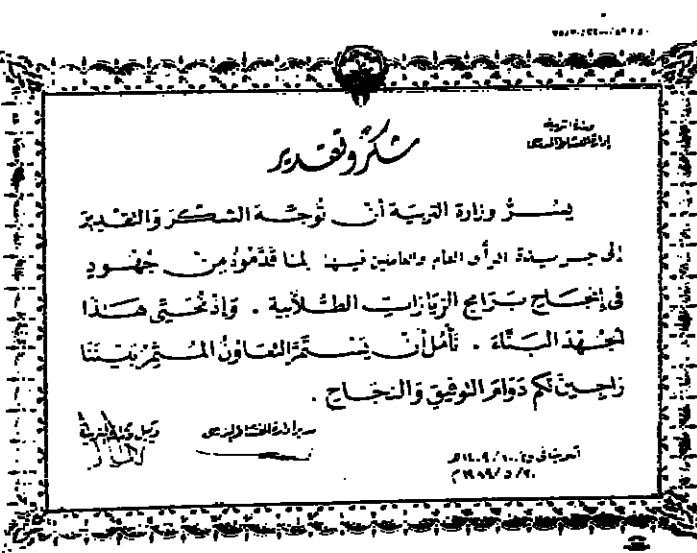 وزارة التربية
إدارة النشاط المدرسي
شكر وتقدير
يسُرُّ وزارة التربية أن تُوجّه الشكر وَالتقدير
إلى جريدة الرأى العام والعاملين فيها لما قدَّمُوهُ مِن جُهُود
فى إنجَاح بَرَامج الزيَارَات الطُّلاَّبية . وَإذ نُحَيّى هَذَا
الجُهْد البَنَّاءَ . نَأمُل أن يَستَمرَّ التعَاونُ المُثمِرُ بَيْنَنَا
رَاجِين لكم دَوَامَ التوفيق وَالنجَاح .
وكيل وزارة التربية
مدير إدارة النشاط المدرسى